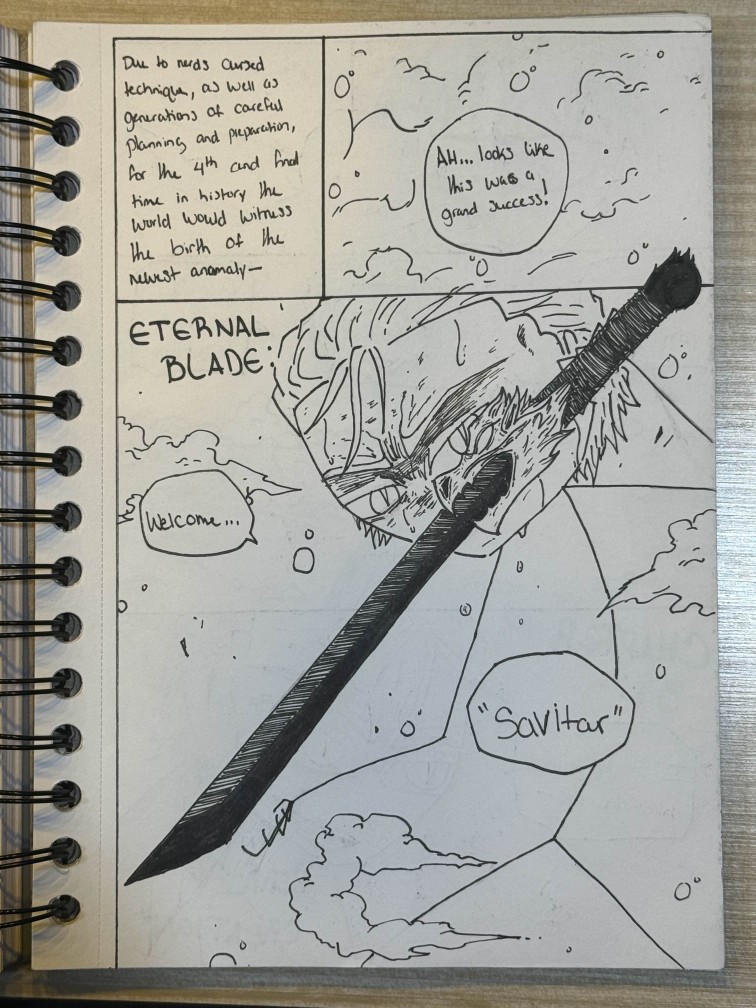 Due to nerds cursed
technique, as well as
generations of careful
planning and preparation,
for the 4th and final
time in history the
world would witness
the birth of the
newest anomaly—
AH... looks like
this was a
grand success!
ETERNAL
BLADE:
Welcome...
"Savitar"